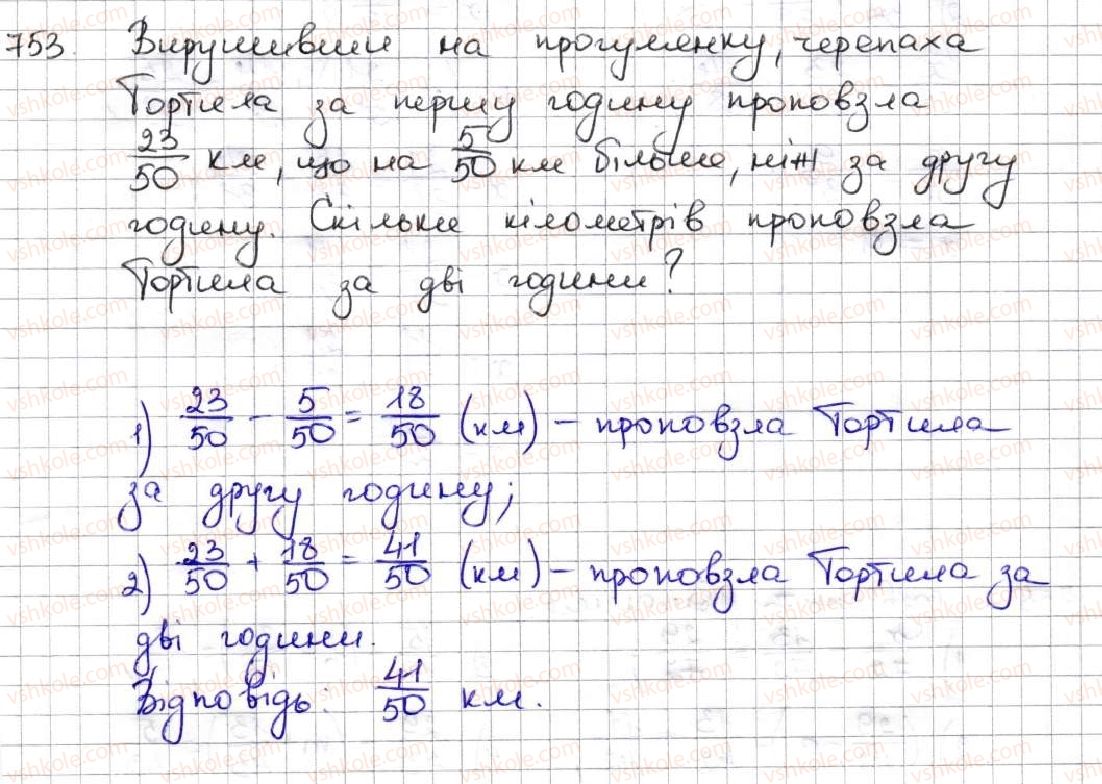 753. Вирушивши на прогулянку, черепаха
Тортила за першу годину проповзла
23/50 км, що на 5/50 км більше, ніж за другу
годину. Скільки кілометрів проповзла
Тортила за дві години?
1) 23/50 - 5/50 = 18/50 (км) – проповзла Тортила
за другу годину;
2) 23/50 + 18/50 = 41/50 (км) – проповзла Тортила за
дві години.
Відповідь: 41/50 км.
vshkole.com